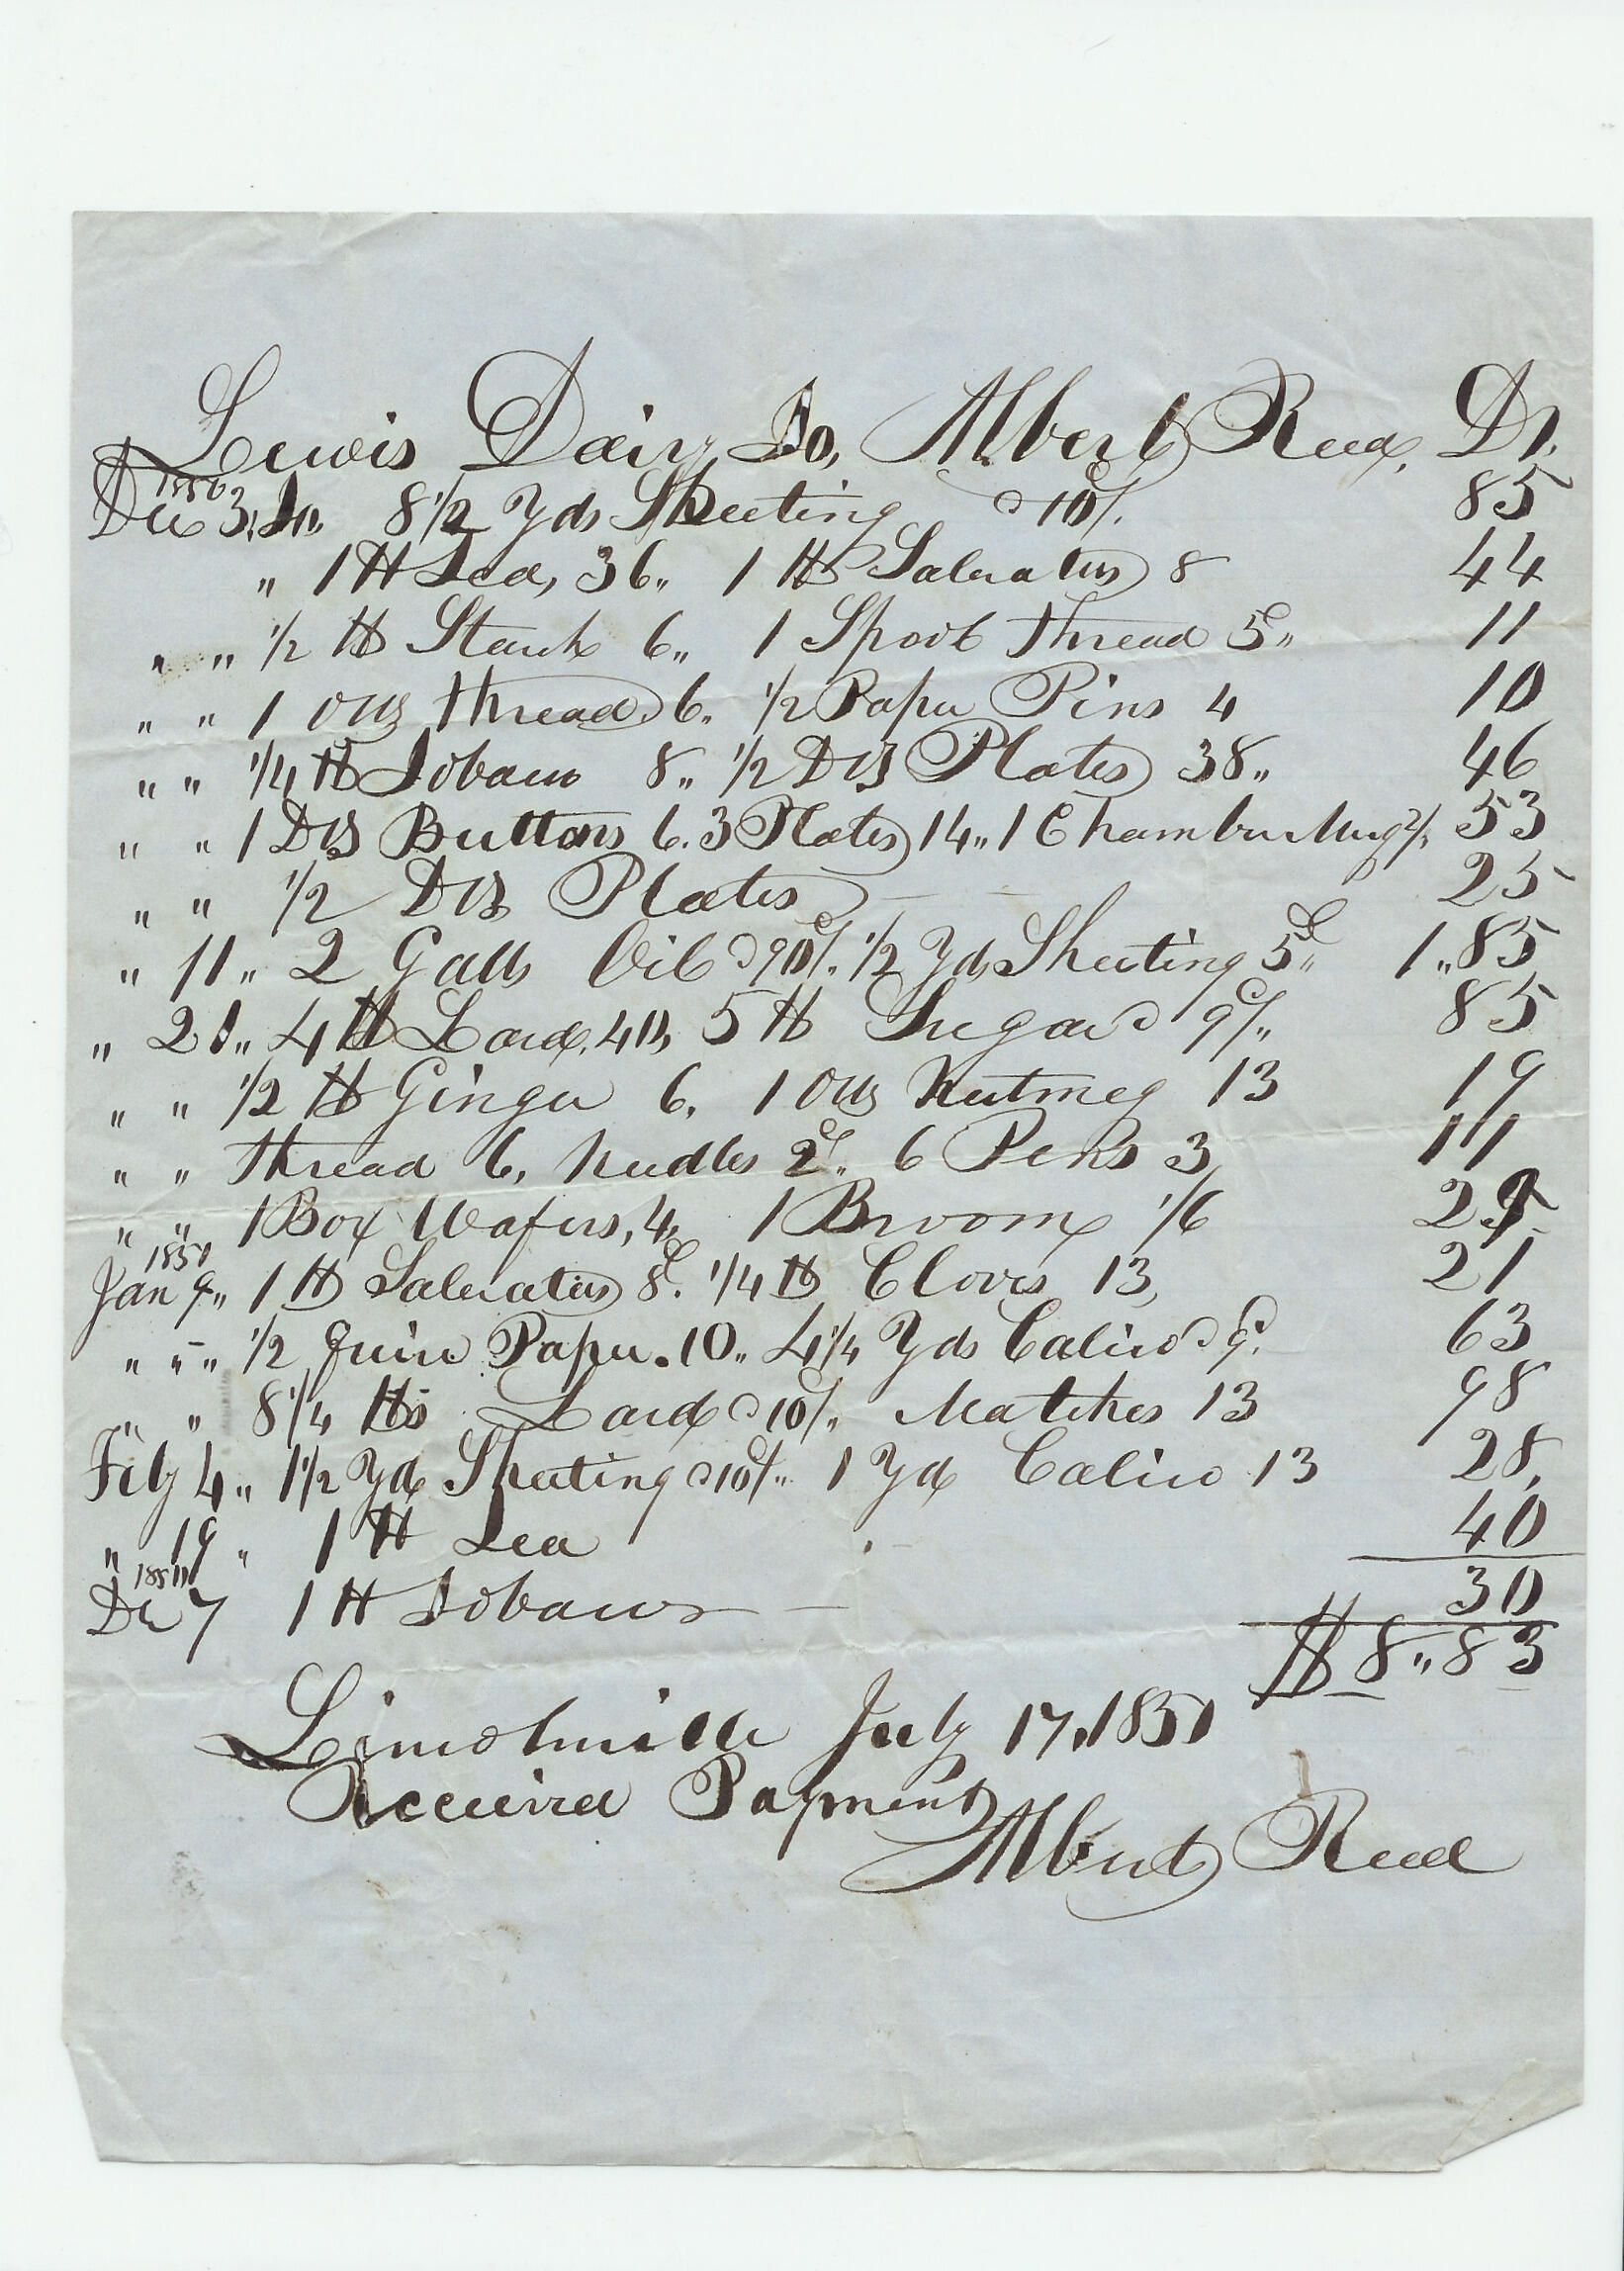 Lewis Dairy To, Albert Reed, Dr.
1850
Dec 3, To 8 1/2 Yds Sheeting 10c/. 85
" 1 lb Tea, 36" 1 lb Saleratus 8 44
" " 1/2 lb Starch 6" 1 Spool Thread 5c" 11
" " 1 ouz thread 6. 1/2 Paper Pins 4 10
" " 1/4 lb Tobacco 8" 1/2 Doz Plates 38" 46
" " 1 Doz Buttons 6. 3 Plates 14" 1 Chamber Mug 2/. 53
" " 1/2 Doz Plates 25
" 11" 2 Galls Oil 90c/. 1/2 Yds Sheeting 5c" 1"85
" 21" 4 lb Lard, 40, 5 lb Sugar 9c/" 85
" " 1/2 lb Ginger 6, 1 ouz Nutmeg 13 19
" " thread 6, Needles 2c" 6 Pens 3, 11
" " 1 Box Wafers, 4, 1 Broom 1/6 29
1851
Jan 9" 1 lb Saleratus 8c. 1/4 lb Cloves 13, 21
" " " 1/2 Quire Paper. 10" 4 1/4 Yds Calico 63
" " 8 1/4 lbs Lard 10c/" Matches 13 98
Feby 4" 1 1/2 Yds Sheeting 10c/" 1 Yd Calico 13 28,
" 19 " 1 lb Tea 40
1850
De 7 1 lb Tobacco 30
$ 8"83
Lincolnville July 17, 1851
Received Payment
Albert Reed